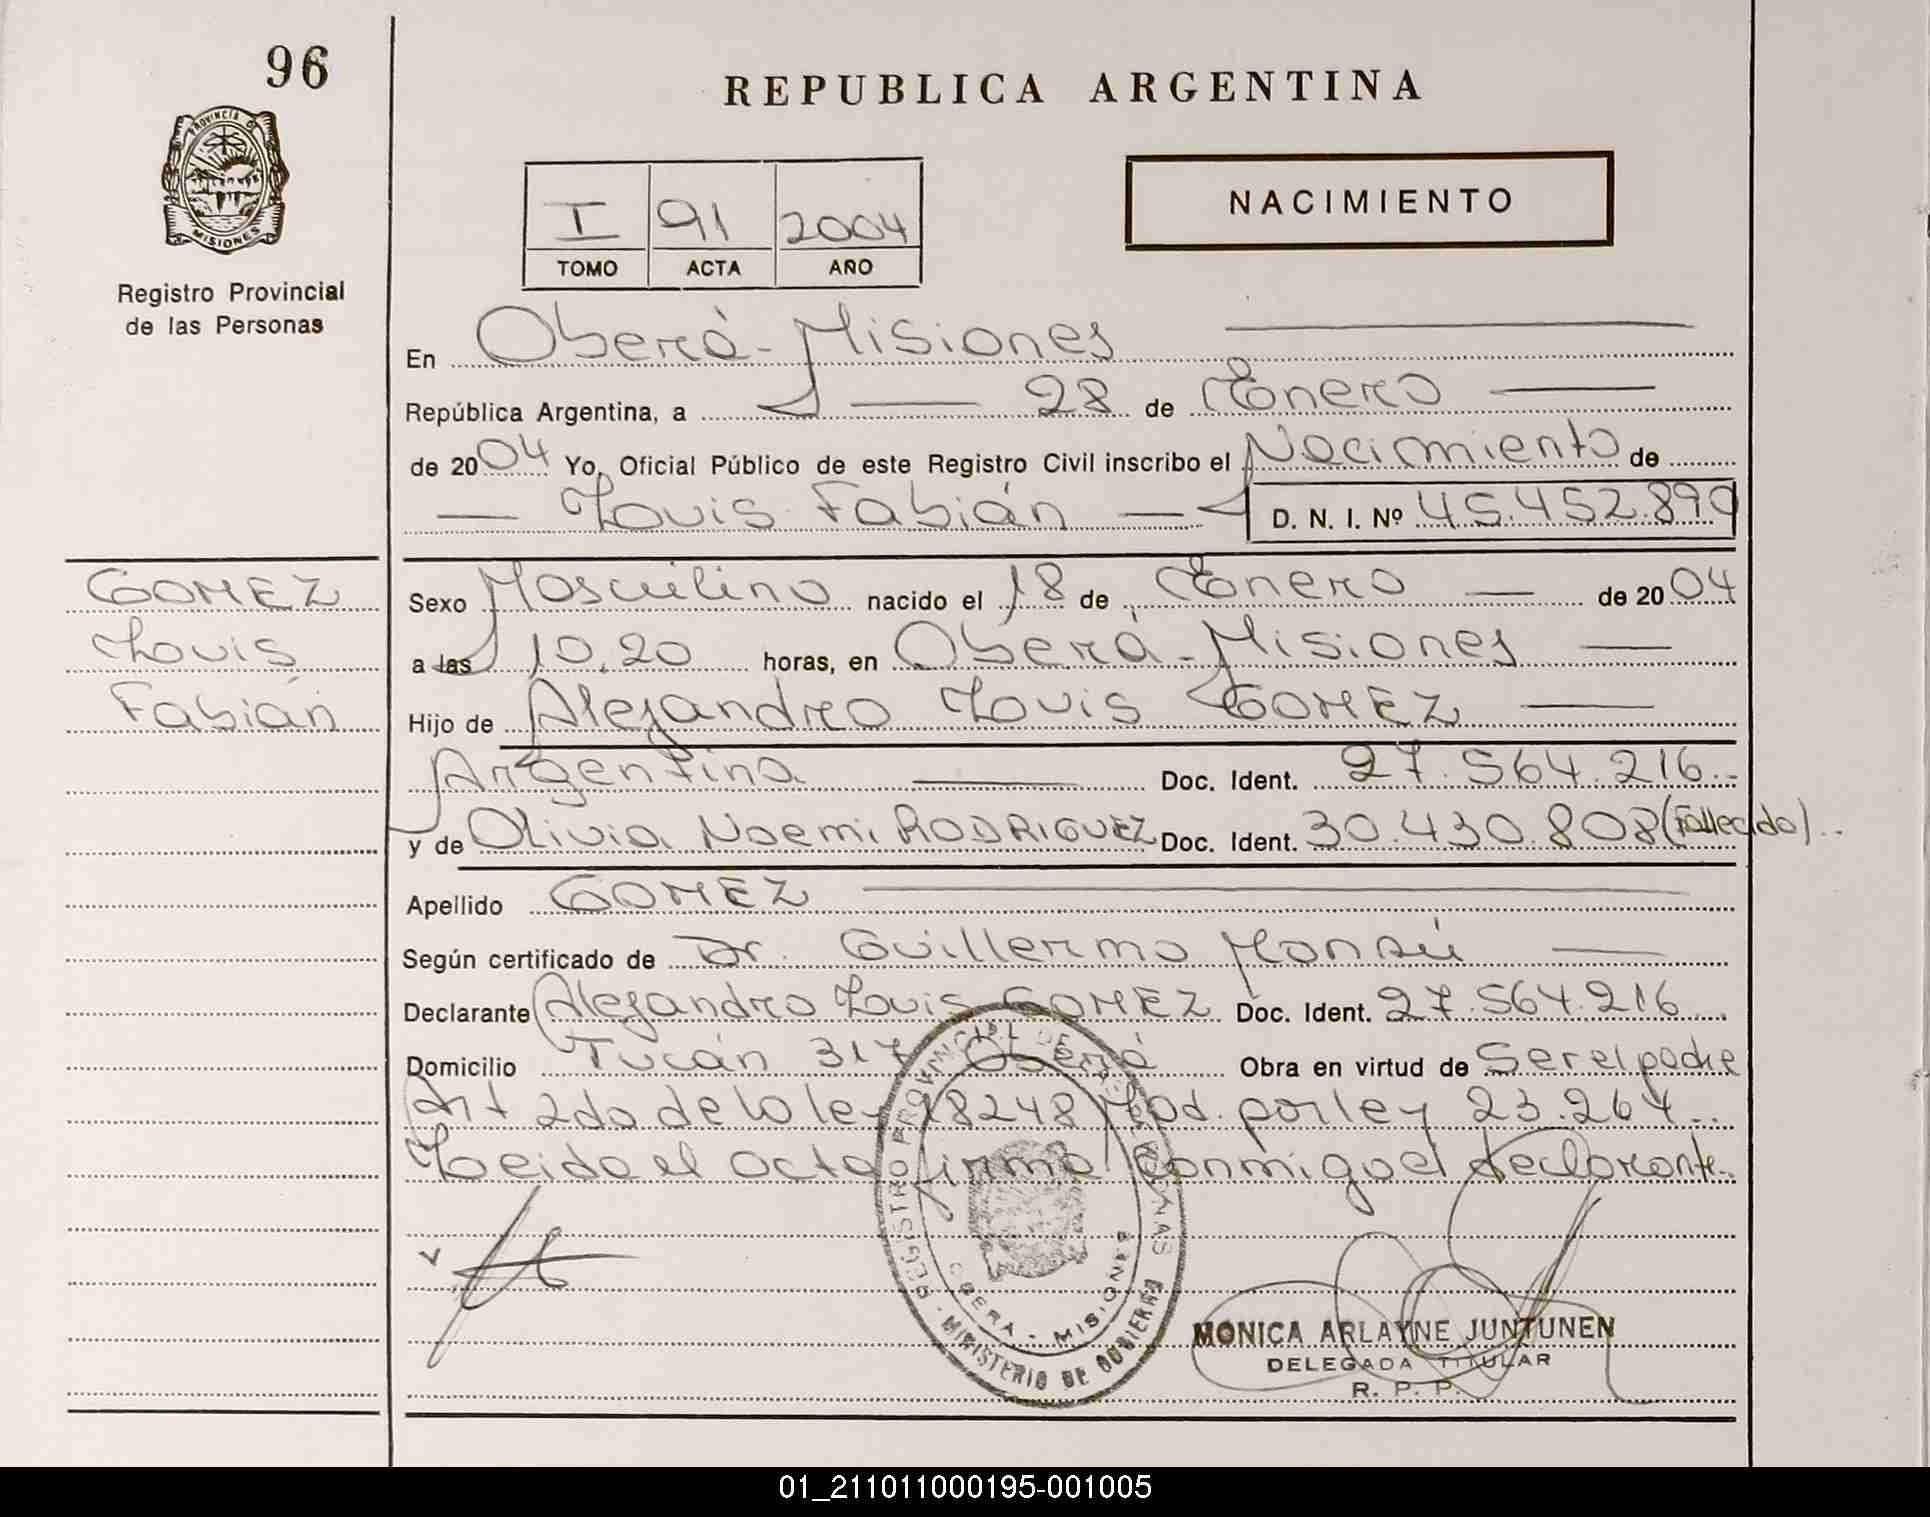 96
REPUBLICA ARGENTINA
PROVINCIA DE MISIONES
Registro Provincial
de las Personas
I 91 2004
TOMO ACTA AÑO
NACIMIENTO
En Oberá - Misiones
República Argentina, a 28 de Enero
de 2004 Yo, Oficial Público de este Registro Civil inscribo el Nacimiento de
Louis Fabián D. N. I. Nº 45.452.890
GOMEZ
Louis
Fabián
Sexo Masculino nacido el 18 de Enero de 2004
a las 10,20 horas, en Oberá - Misiones
Hijo de Alejandro Louis GOMEZ
Argentina Doc. Ident. 27.564.216
y de Olivia Noemi RODRIGUEZ Doc. Ident. 30.430.808 (Fallecida)
Apellido GOMEZ
Según certificado de Dr. Guillermo Monsú
Declarante Alejandro Louis GOMEZ Doc. Ident. 27.564.216
Domicilio Tucán 317 Oberá Obra en virtud de Ser el padre
Art 2do de la ley 18248 Mod. por ley 23.264
Leida el acta firma conmigo el declarante
REGISTRO PROVINCIAL DE LAS PERSONAS
OBERA - MISIONES
MINISTERIO DE GOBIERNO
MONICA ARLAYNE JUNTUNEN
DELEGADA TITULAR
R. P. P.
01_211011000195-001005